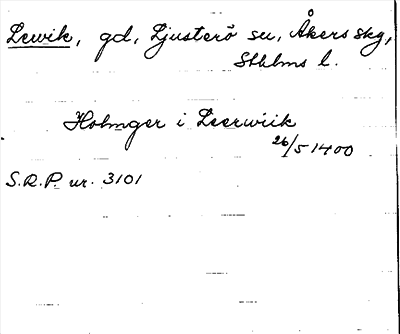 Lervik, gd, Ljusterö sn, Åkers skg,
Sthlms l.
Holmger i Leerwiik
26/5 1400
S.R.P. nr. 3101